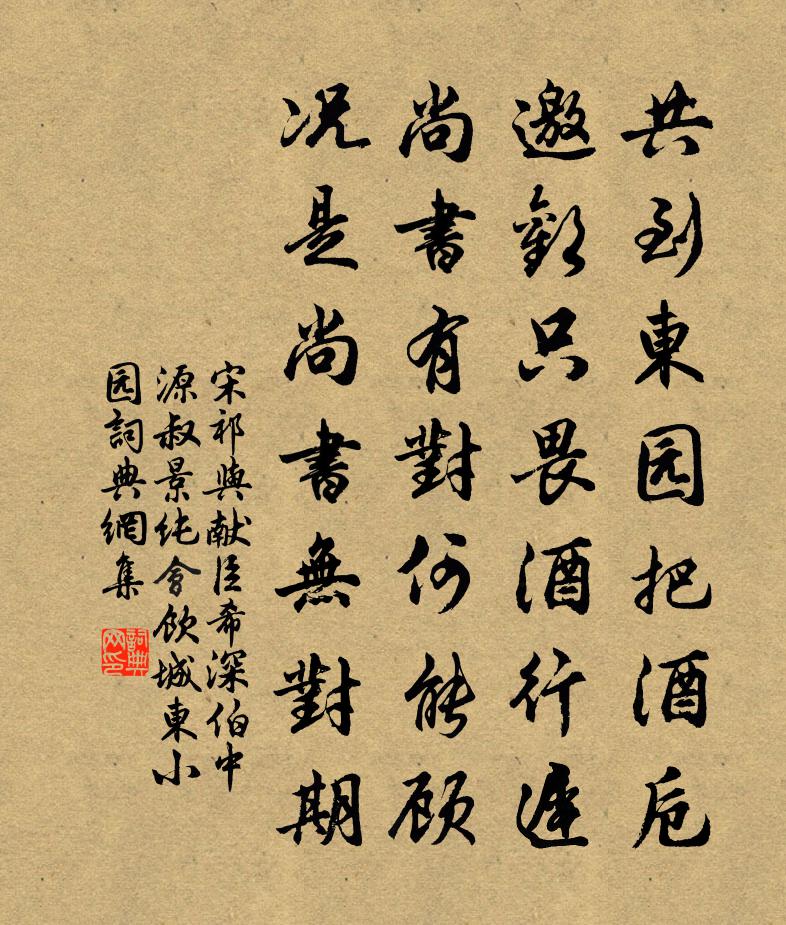 共到東园把酒卮
邀歡只畏酒行遲
尚書有對何能顾
况是尚書無對期
宋祁與献臣希深伯中
源叔景纯會飲城東小
园詞典網集
詞典网印